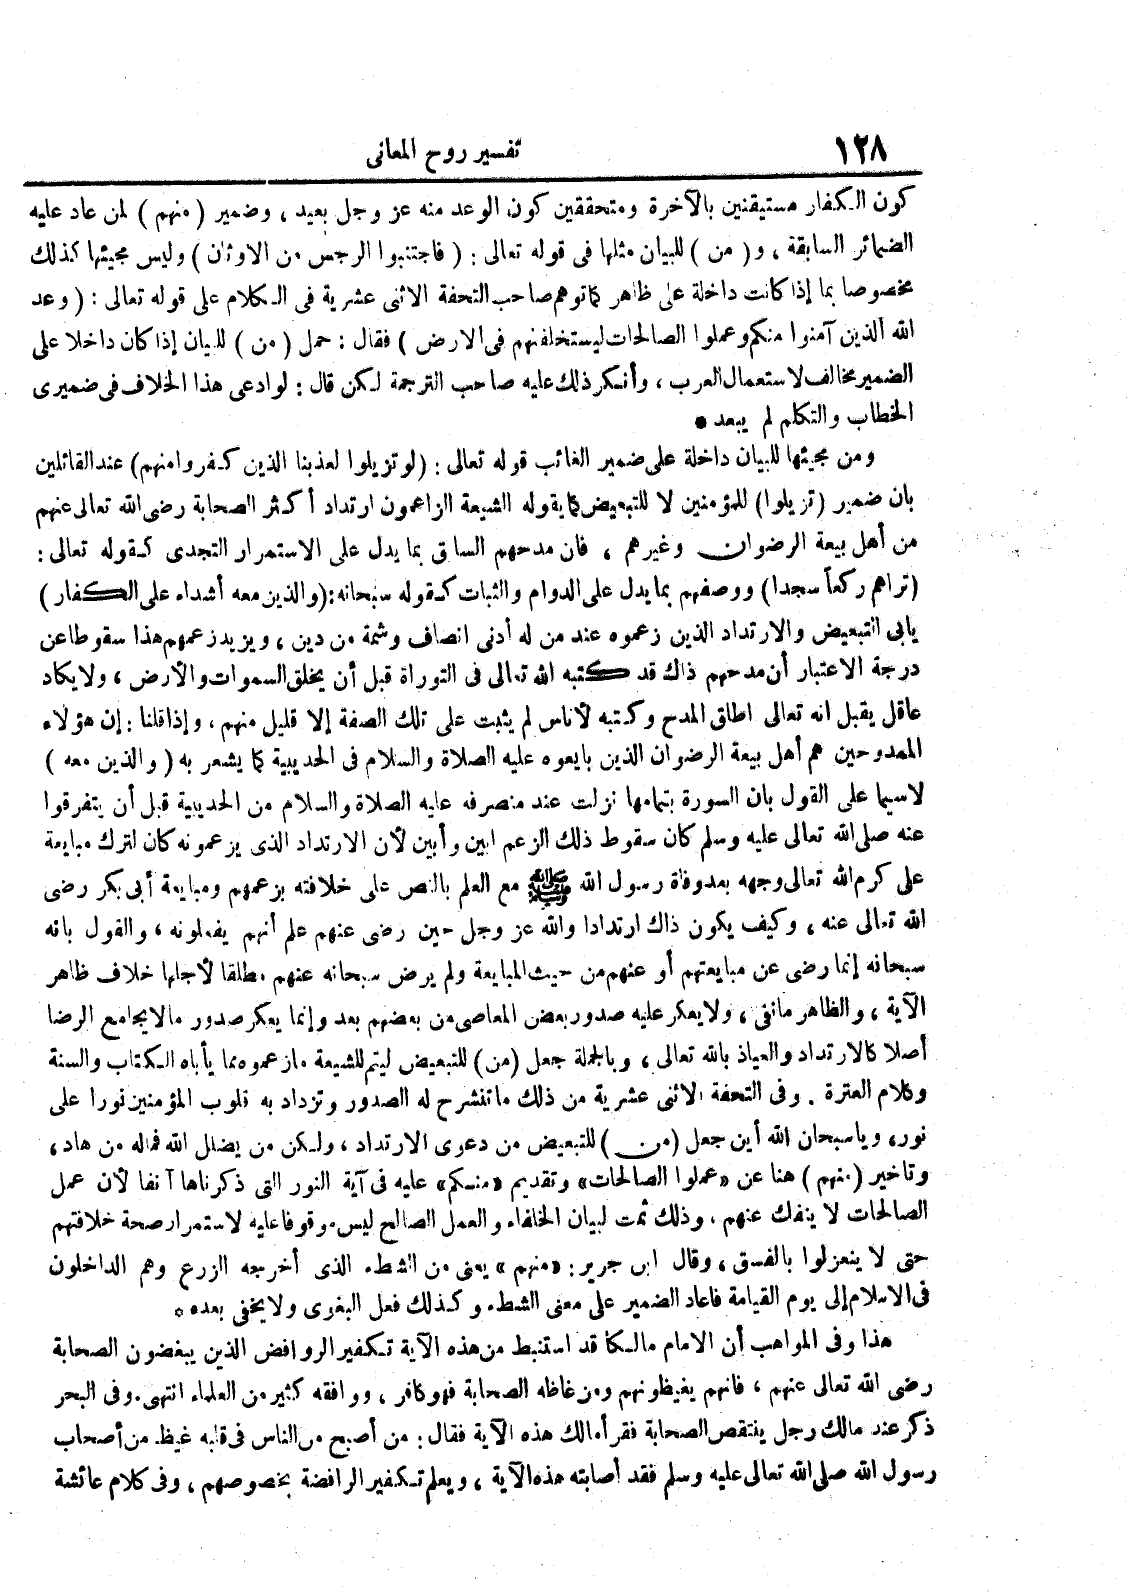 ١٢٨
تفسير روح المعانى
كون الكفار مستيقنين بالآخرة ومتحققين كون الوعد منه عز وجل بعيد ، وضمير ( منهم ) لمن عاد عليه
الضمائر السابقة ، و( من ) للبيان مثلها فى قوله تعالى : ( فاجتنبوا الرجس من الاوثان ) وليس مجيئها كذلك
مخصوصا بما إذا كانت داخلة على ظاهر كما توهم صاحب التحفة الاثنى عشرية فى الكلام على قوله تعالى : ( وعد
الله الذين آمنوا منكم وعملوا الصالحات ليستخلفنهم فى الارض ) فقال : حمل ( من ) للبيان إذا كان داخلا على
الضمير مخالف لاستعمال العرب ، وأنكر ذلك عليه صاحب الترجمة لكن قال : لو ادعى هذا الخلاف فى ضميرى
الخطاب والتكلم لم يبعد *
ومن مجيئها للبيان داخلة على ضمير الغائب قوله تعالى : (لو تزيلوا لعذبنا الذين كفروا منهم) عند القائلين
بان ضمير (تزيلوا) للمؤمنين لا للتبعيض كما يقوله الشيعة الزاعمون ارتداد أكثر الصحابة رضى الله تعالى عنهم
من أهل بيعة الرضوان وغيرهم ، فان مدحهم السابق بما يدل على الاستمرار التجدى كقوله تعالى :
(تراهم ركعاً سجدا) ووصفهم بما يدل على الدوام والثبات كقوله سبحانه:(والذين معه أشداء على الكفار )
يابى التبعيض والارتداد الذين زعموه عند من له أدنى انصاف وشمة من دين ، ويزيد زعمهم هذا سقوطا عن
درجة الاعتبار أن مدحهم ذاك قد كتبه الله تعالى فى التوراة قبل أن يخلق السموات والارض ، ولا يكاد
عاقل يقبل انه تعالى اطلق المدح وكتبه لأناس لم يثبت على تلك الصفة إلا قليل منهم ، وإذا قلنا : إن هؤلاء
الممدوحين هم أهل بيعة الرضوان الذين بايعوه عليه الصلاة والسلام فى الحديبية كما يشعر به ( والذين معه )
لاسيما على القول بان السورة بتمامها نزلت عند منصرفه عليه الصلاة والسلام من الحديبية قبل أن يتفرقوا
عنه صلى الله تعالى عليه وسلم كان سقوط ذلك الزعم ابين وأبين لأن الارتداد الذى يزعمونه كان لترك مبايعة
على كرم الله تعالى وجهه بعد وفاة رسول الله ﷺ مع العلم بالنص على خلافته بزعمهم ومبايعة أبى بكر رضى
الله تعالى عنه ، وكيف يكون ذاك ارتدادا والله عز وجل حين رضى عنهم علم أنهم يفعلونه ، والقول بانه
سبحانه إنما رضى عن مبايعتهم أو عنهم من حيث المبايعة ولم يرض سبحانه عنهم مطلقا لأجلها خلاف ظاهر
الآية ، والظاهر مانفى ، ولا يعكر عليه صدور بعض المعاصى من بعضهم بعد وإنما يعكر صدور مالا يجامع الرضا
أصلا كالارتداد والعياذ بالله تعالى ، وبالجملة جعل (من) للتبعيض ليتم للشيعة مازعموه مما يأباه الكتاب والسنة
وكلام العترة . وفى التحفة الاثنى عشرية من ذلك ما تنشرح له الصدور وتزداد به قلوب المؤمنين نورا على
نور، وياسبحان الله أين جعل (من ) للتبعيض من دعوى الارتداد ، ولكن من يضلل الله فماله من هاد ،
وتاخير ( منهم ) هنا عن «عملوا الصالحات» وتقديم «منكم» عليه فى آية النور التى ذكرناها آنفا لأن عمل
الصالحات لا ينفك عنهم ، وذلك ثمت لبيان الخلفاء والعمل الصالح ليس موقوفا عليه لاستمرار صحة خلافتهم
حتى لا ينعزلوا بالفسق ، وقال ابن جرير : «منهم » يعنى من الشطء الذى أخرجه الزرع وهم الداخلون
فى الاسلام إلى يوم القيامة فاعاد الضمير على معنى الشطء وكذلك فعل البغوى ولا يخفى بعده *
هذا وفى المواهب أن الامام مالكا قد استنبط من هذه الآية تكفير الروافض الذين يبغضون الصحابة
رضى الله تعالى عنهم ، فانهم يغيظونهم ومن غاظه الصحابة فهو كافر ، ووافقه كثير من العلماء انتهى . وفى البحر
ذكر عند مالك رجل ينتقص الصحابة فقرأ مالك هذه الآية فقال : من أصبح من الناس فى قلبه غيظ من أصحاب
رسول الله صلى الله تعالى عليه وسلم فقد أصابته هذه الآية ، ويعلم تكفير الرافضة بخصوصهم ، وفى كلام عائشة